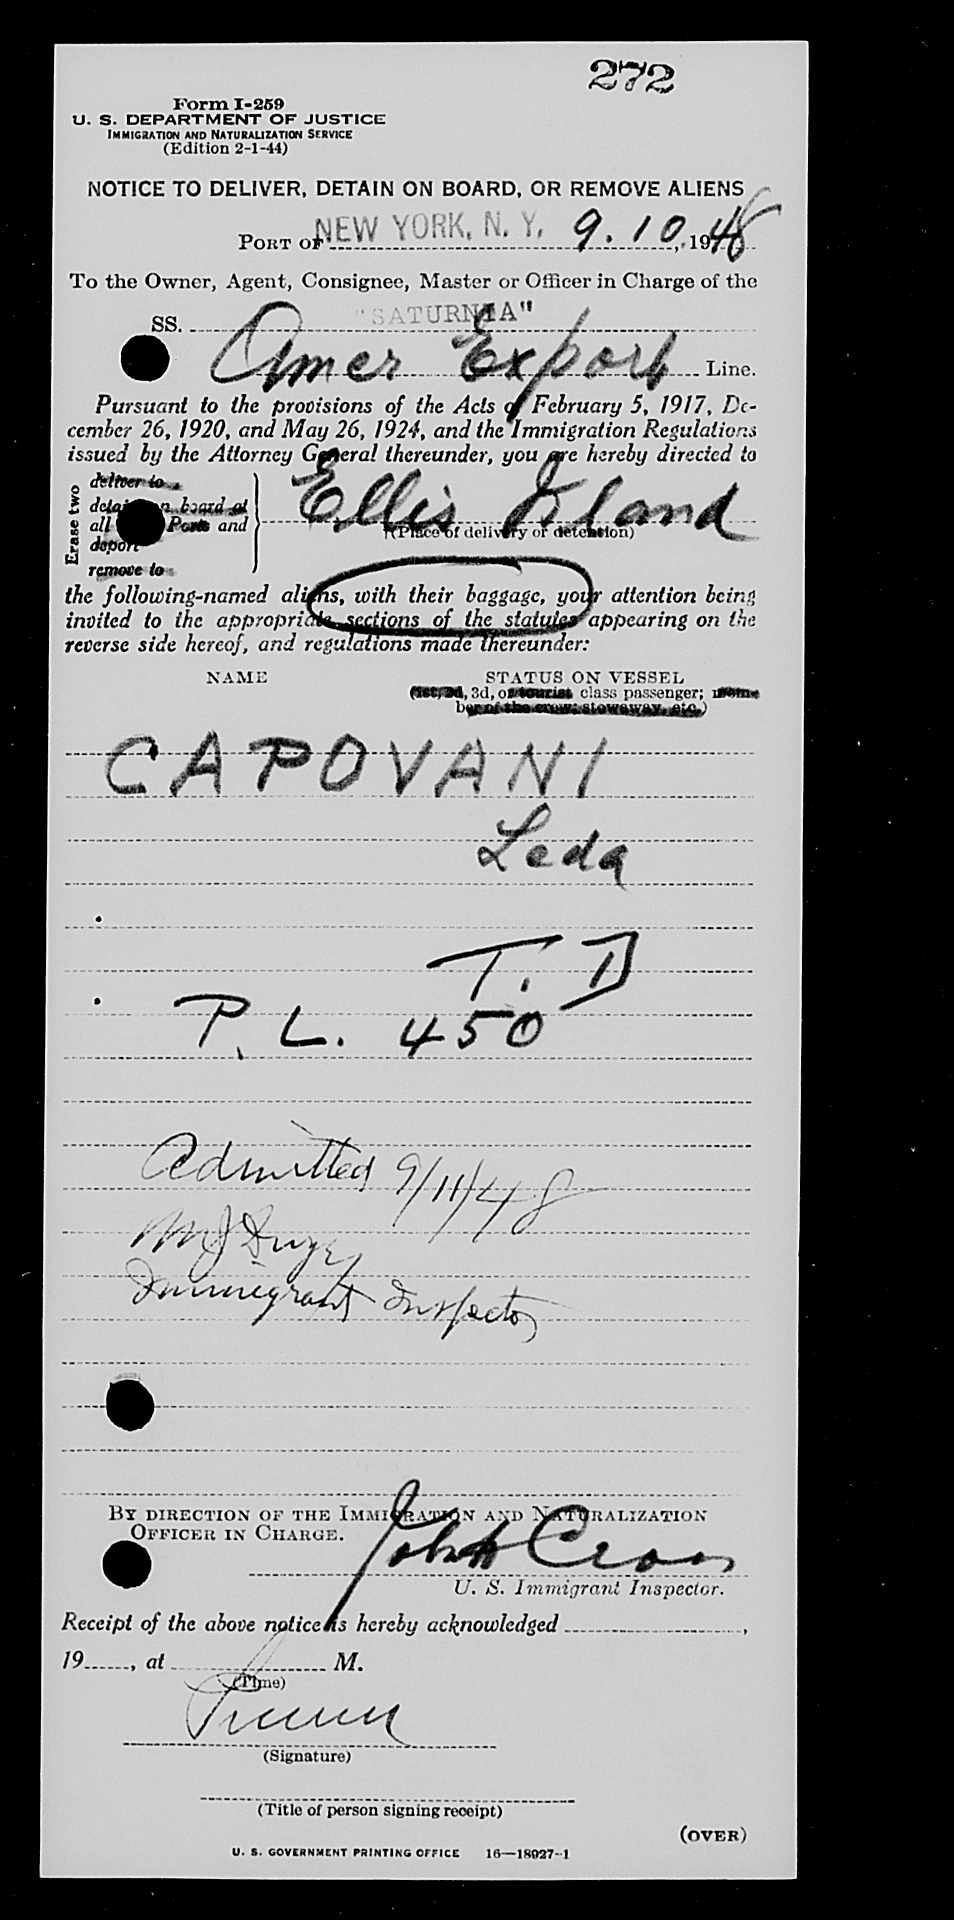 272
Form I-259
U. S. DEPARTMENT OF JUSTICE
IMMIGRATION AND NATURALIZATION SERVICE
(Edition 2-1-44)
NOTICE TO DELIVER, DETAIN ON BOARD, OR REMOVE ALIENS
PORT OF NEW YORK, N. Y. 9. 10, 1948
To the Owner, Agent, Consignee, Master or Officer in Charge of the
SS. "SATURNIA"
Amer Export Line.
Pursuant to the provisions of the Acts of February 5, 1917, De-
cember 26, 1920, and May 26, 1924, and the Immigration Regulations
issued by the Attorney General thereunder, you are hereby directed to
Erase two
deliver to
detain on board at
all Ports and
deport
remove to
Ellis Island
(Place of delivery or detention)
the following-named aliens, with their baggage, your attention being
invited to the appropriate sections of the statutes appearing on the
reverse side hereof, and regulations made thereunder:
NAME STATUS ON VESSEL
(1st, 2d, 3d, or tourist class passenger; mem-
ber of the crew; stowaway, etc.)
CAPOVANI
Leda
T. D
P. L. 450
Admitted 9/11/48
Immigrant Inspector
BY DIRECTION OF THE IMMIGRATION AND NATURALIZATION
OFFICER IN CHARGE.
John Cross
U. S. Immigrant Inspector.
Receipt of the above notice is hereby acknowledged ,
19 , at M.
(Time)
(Signature)
(Title of person signing receipt)
(OVER)
U. S. GOVERNMENT PRINTING OFFICE 16—18027-1